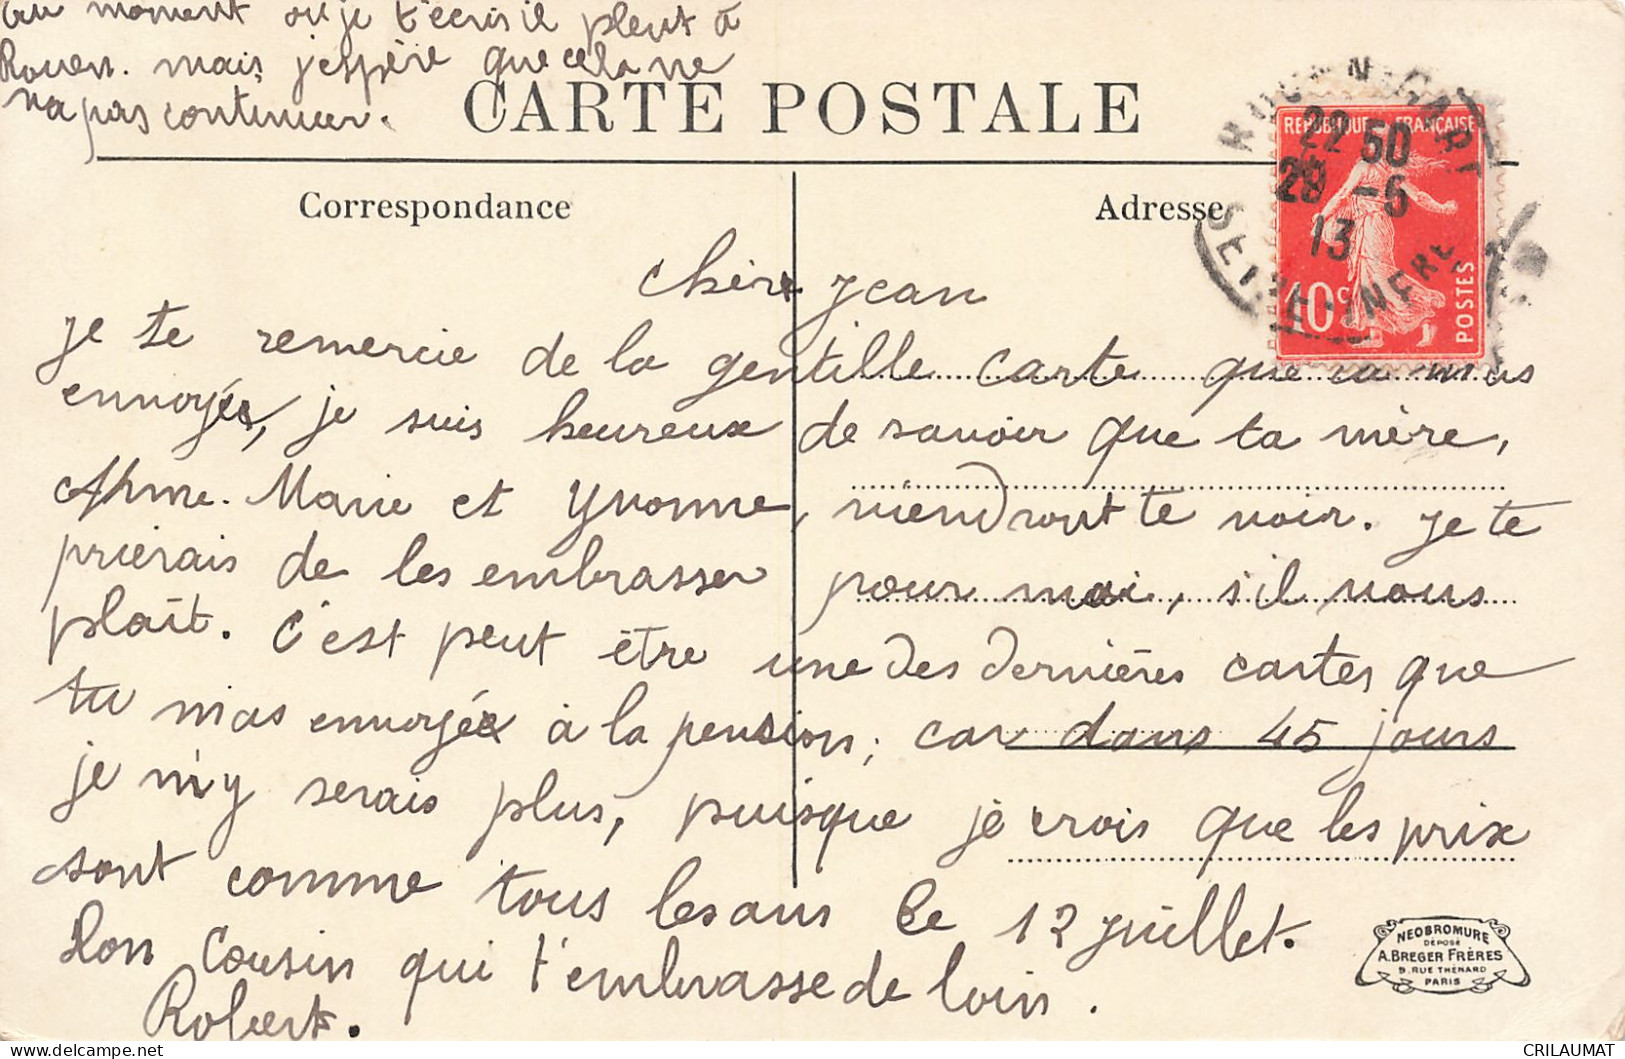 Au moment où je t'écris il pleut à
Rouen. mais j'espère que cela ne
va pas continuer.
CARTE POSTALE
Correspondance
Adresse
REPUBLIQUE FRANÇAISE
22 50
29 -5
13
10c
POSTES
SEINE-INFRE
Chère Jean
je te remercie de la gentille carte que tu m'as
envoyée, je suis heureux de savoir que ta mère,
Marie et Yvonne, viendront te voir. je te
prierais de les embrasser pour moi, s'il vous
plaît. C'est peut être une des dernières cartes que
tu m'as envoyée à la pension, car dans 45 jours
je m'y serais plus, puisque je crois que les prix
sont comme tous les ans le 12 juillet.
Ton Cousin qui t'embrasse de loin.
Robert.
NEOBROMURE
DÉPOSÉ
A. BREGER FRÈRES
9, RUE THÉNARD
PARIS
CRILAUMAT